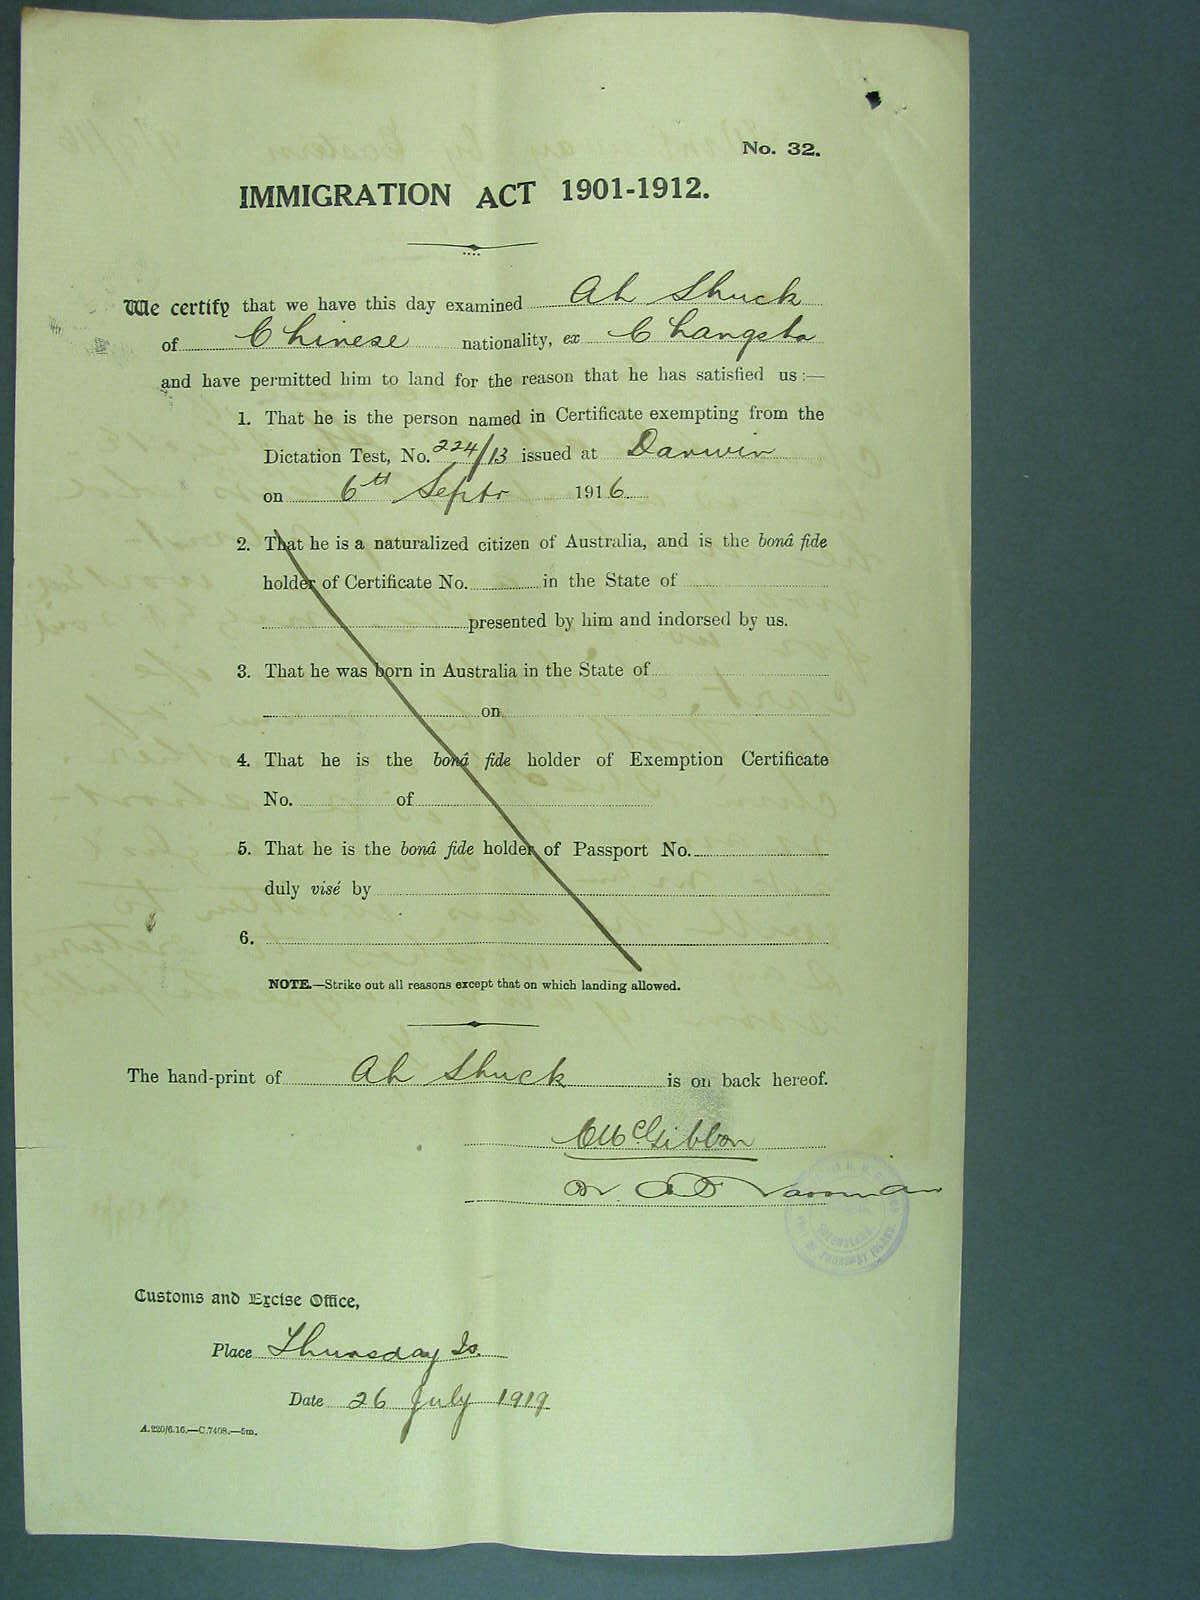 No. 32.
IMMIGRATION ACT 1901-1912.
We certify that we have this day examined Ah Shuck
of Chinese nationality, ex Changsha
and have permitted him to land for the reason that he has satisfied us :—
1. That he is the person named in Certificate exempting from the
Dictation Test, No. 224/13 issued at Darwin
on 6th Septr 1916.
2. That he is a naturalized citizen of Australia, and is the bonâ fide
holder of Certificate No. in the State of
presented by him and indorsed by us.
3. That he was born in Australia in the State of
on
4. That he is the bonâ fide holder of Exemption Certificate
No. of
5. That he is the bonâ fide holder of Passport No.
duly visé by
6.
NOTE.—Strike out all reasons except that on which landing allowed.
The hand-print of Ah Shuck is on back hereof.
McGibbon
Customs and Excise Office,
Place Thursday Is.
Date 26 July 1919
A.220/6.16.—C.7408.—5m.